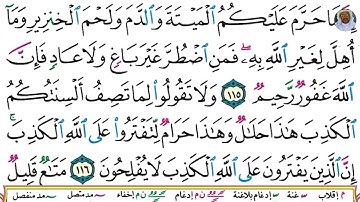 إِنَّمَا حَرَّمَ عَلَيْكُمُ ٱلْمَيْتَةَ وَٱلدَّمَ وَلَحْمَ ٱلْخِنزِيرِ وَمَآ
أُهِلَّ لِغَيْرِ ٱللَّهِ بِهِۦۖ فَمَنِ ٱضْطُرَّ غَيْرَ بَاغٍ وَلَا عَادٍ فَإِنَّ
ٱللَّهَ غَفُورٌ رَّحِيمٌ ١١٥ وَلَا تَقُولُوا۟ لِمَا تَصِفُ أَلْسِنَتُكُمُ
ٱلْكَذِبَ هَٰذَا حَلَٰلٌ وَهَٰذَا حَرَامٌ لِّتَفْتَرُوا۟ عَلَى ٱللَّهِ ٱلْكَذِبَۚ
إِنَّ ٱلَّذِينَ يَفْتَرُونَ عَلَى ٱللَّهِ ٱلْكَذِبَ لَا يُفْلِحُونَ ١١٦ مَتَٰعٌ قَلِيلٌ
م إقلاب غنة إدغام بلاغنة م إدغام إخفاء مد متصل مد منفصل